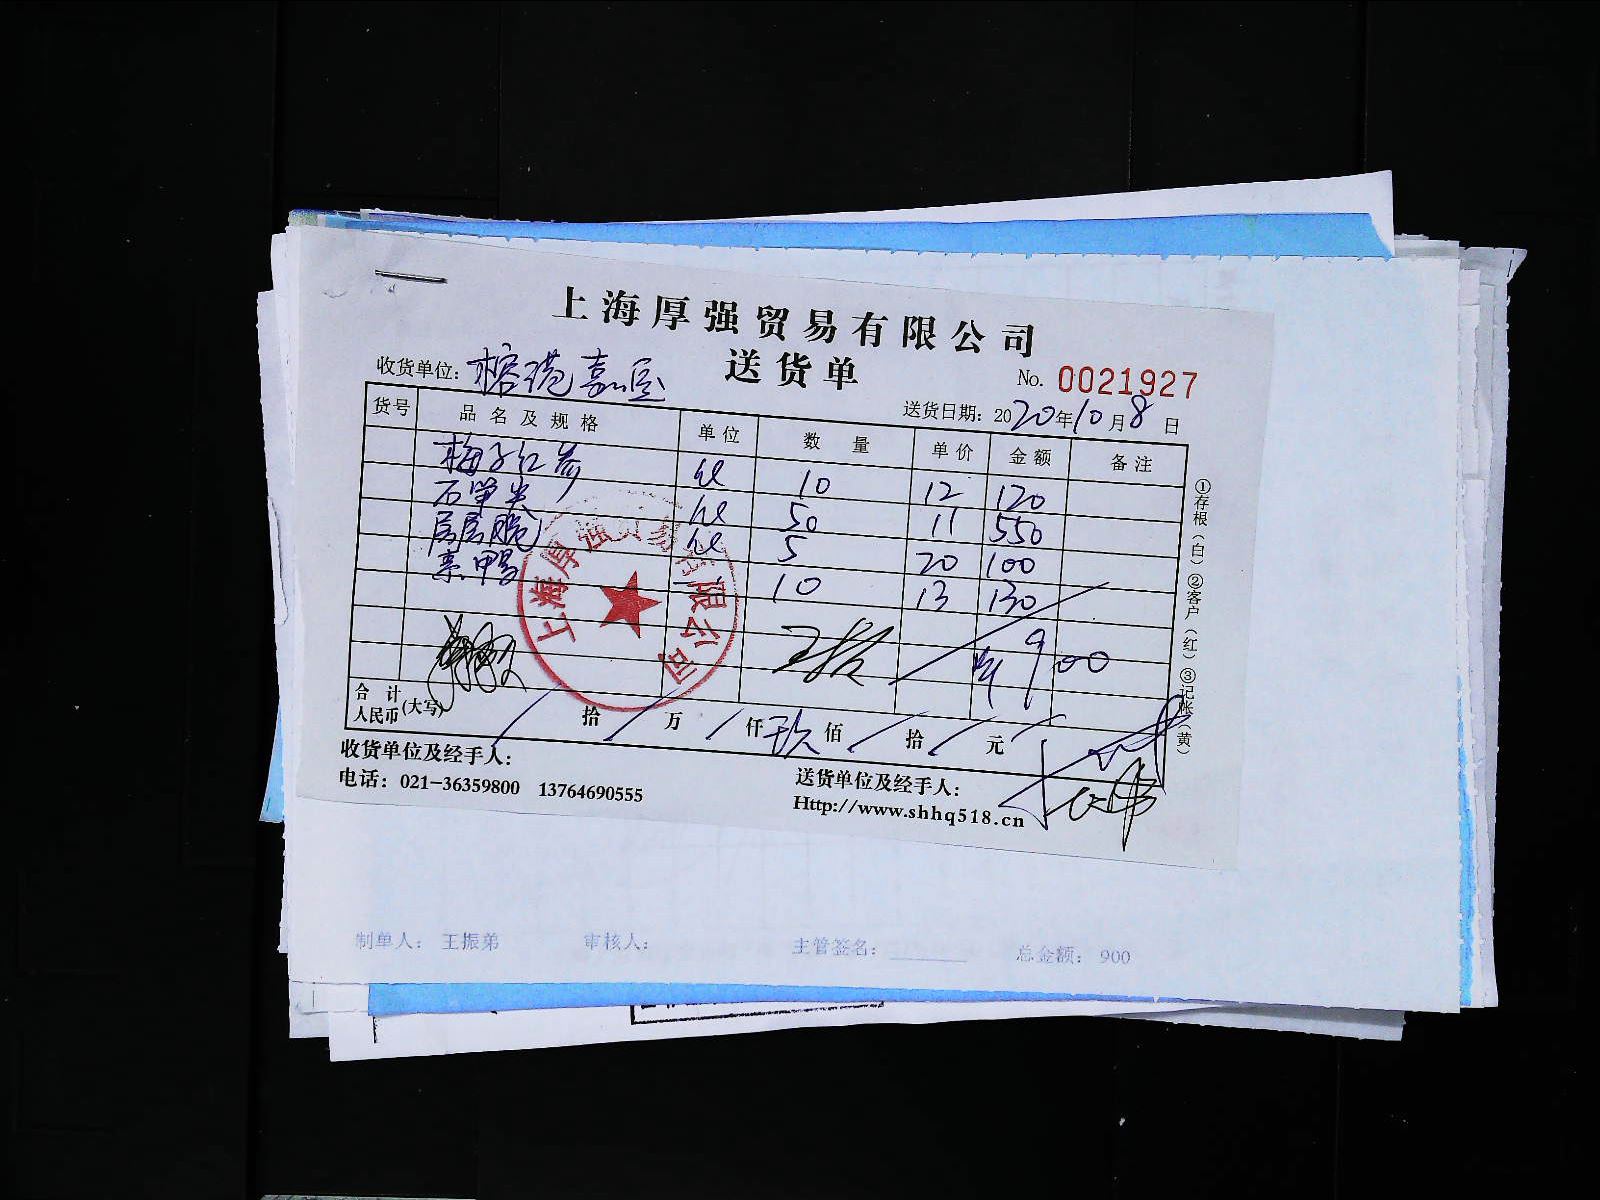 上海厚强贸易有限公司
送货单
收货单位：榕港嘉
No. 0021927
送货日期：2020年10月8日
货号 品名及规格 单位 数量 单价 金额 备注
梅子红 10 12 120
石笋尖 50 11 550
层层脆 5 20 100
鸭 10 13 130
¥900
合计人民币(大写) 拾 万 仟 玖 佰 拾 元
①存根（白）②客户（红）③记账（黄）
上海厚强贸易有限公司
收货单位及经手人：
送货单位及经手人：
电话：021-36359800 13764690555
Http://www.shhq518.cn
制单人： 王振弟 审核人： 主管签名： 总金额： 900